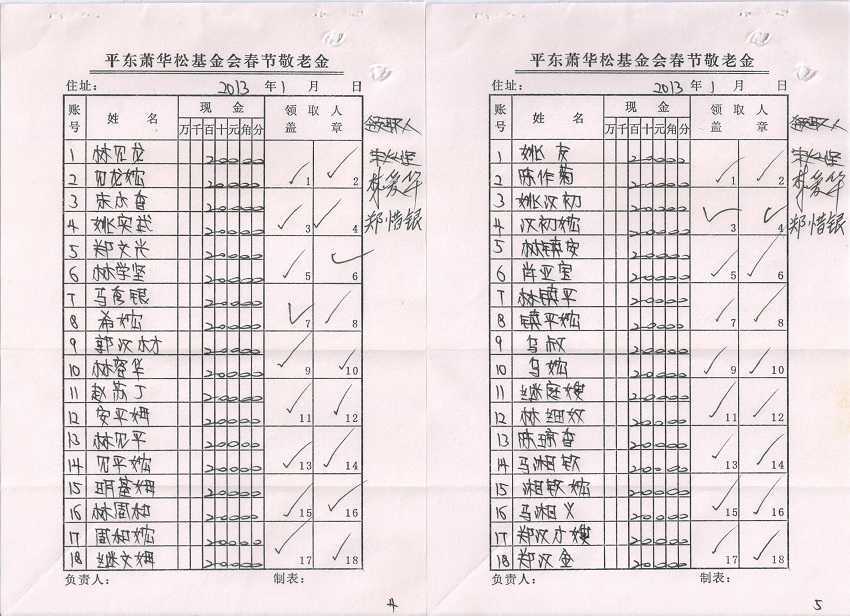 平东萧华松基金会春节敬老金
住址： 2013 年 1 月 日
账号 姓名 现金 领取人盖章
万 千 百 十 元 角 分
领取人
郑惜银
1 林见龙 20000 1
2 见龙婶 20000 2
3 20000 3
4 姚实武 20000 4
5 郑文兴 20000 5
6 林学坚 20000 6
7 马秀银 20000 7
8 希婶 20000 8
9 郭汉林 20000 9
10 林容华 20000 10
11 赵苏丁 20000 11
12 安平姆 20000 12
13 林见平 20000 13
14 见平婶 20000 14
15 明基姆 20000 15
16 林周和 20000 16
17 周和婶 20000 17
18 继文姆 20000 18
负责人： 制表：
4
平东萧华松基金会春节敬老金
住址： 2013 年 1 月 日
账号 姓名 现金 领取人盖章
万 千 百 十 元 角 分
领取人
郑惜银
1 姚友 20000 1
2 陈作菊 20000 2
3 姚汉初 20000 3
4 汉初婶 20000 4
5 林镇安 20000 5
6 肖亚宝 20000 6
7 林镇平 20000 7
8 镇平婶 20000 8
9 乌叔 20000 9
10 乌婶 20000 10
11 继庭嫂 20000 11
12 林细奴 20000 12
13 陈琼香 20000 13
14 马湘钦 20000 14
15 湘钦婶 20000 15
16 马湘义 20000 16
17 郑汉才嫂 20000 17
18 郑汉金 20000 18
负责人： 制表：
5